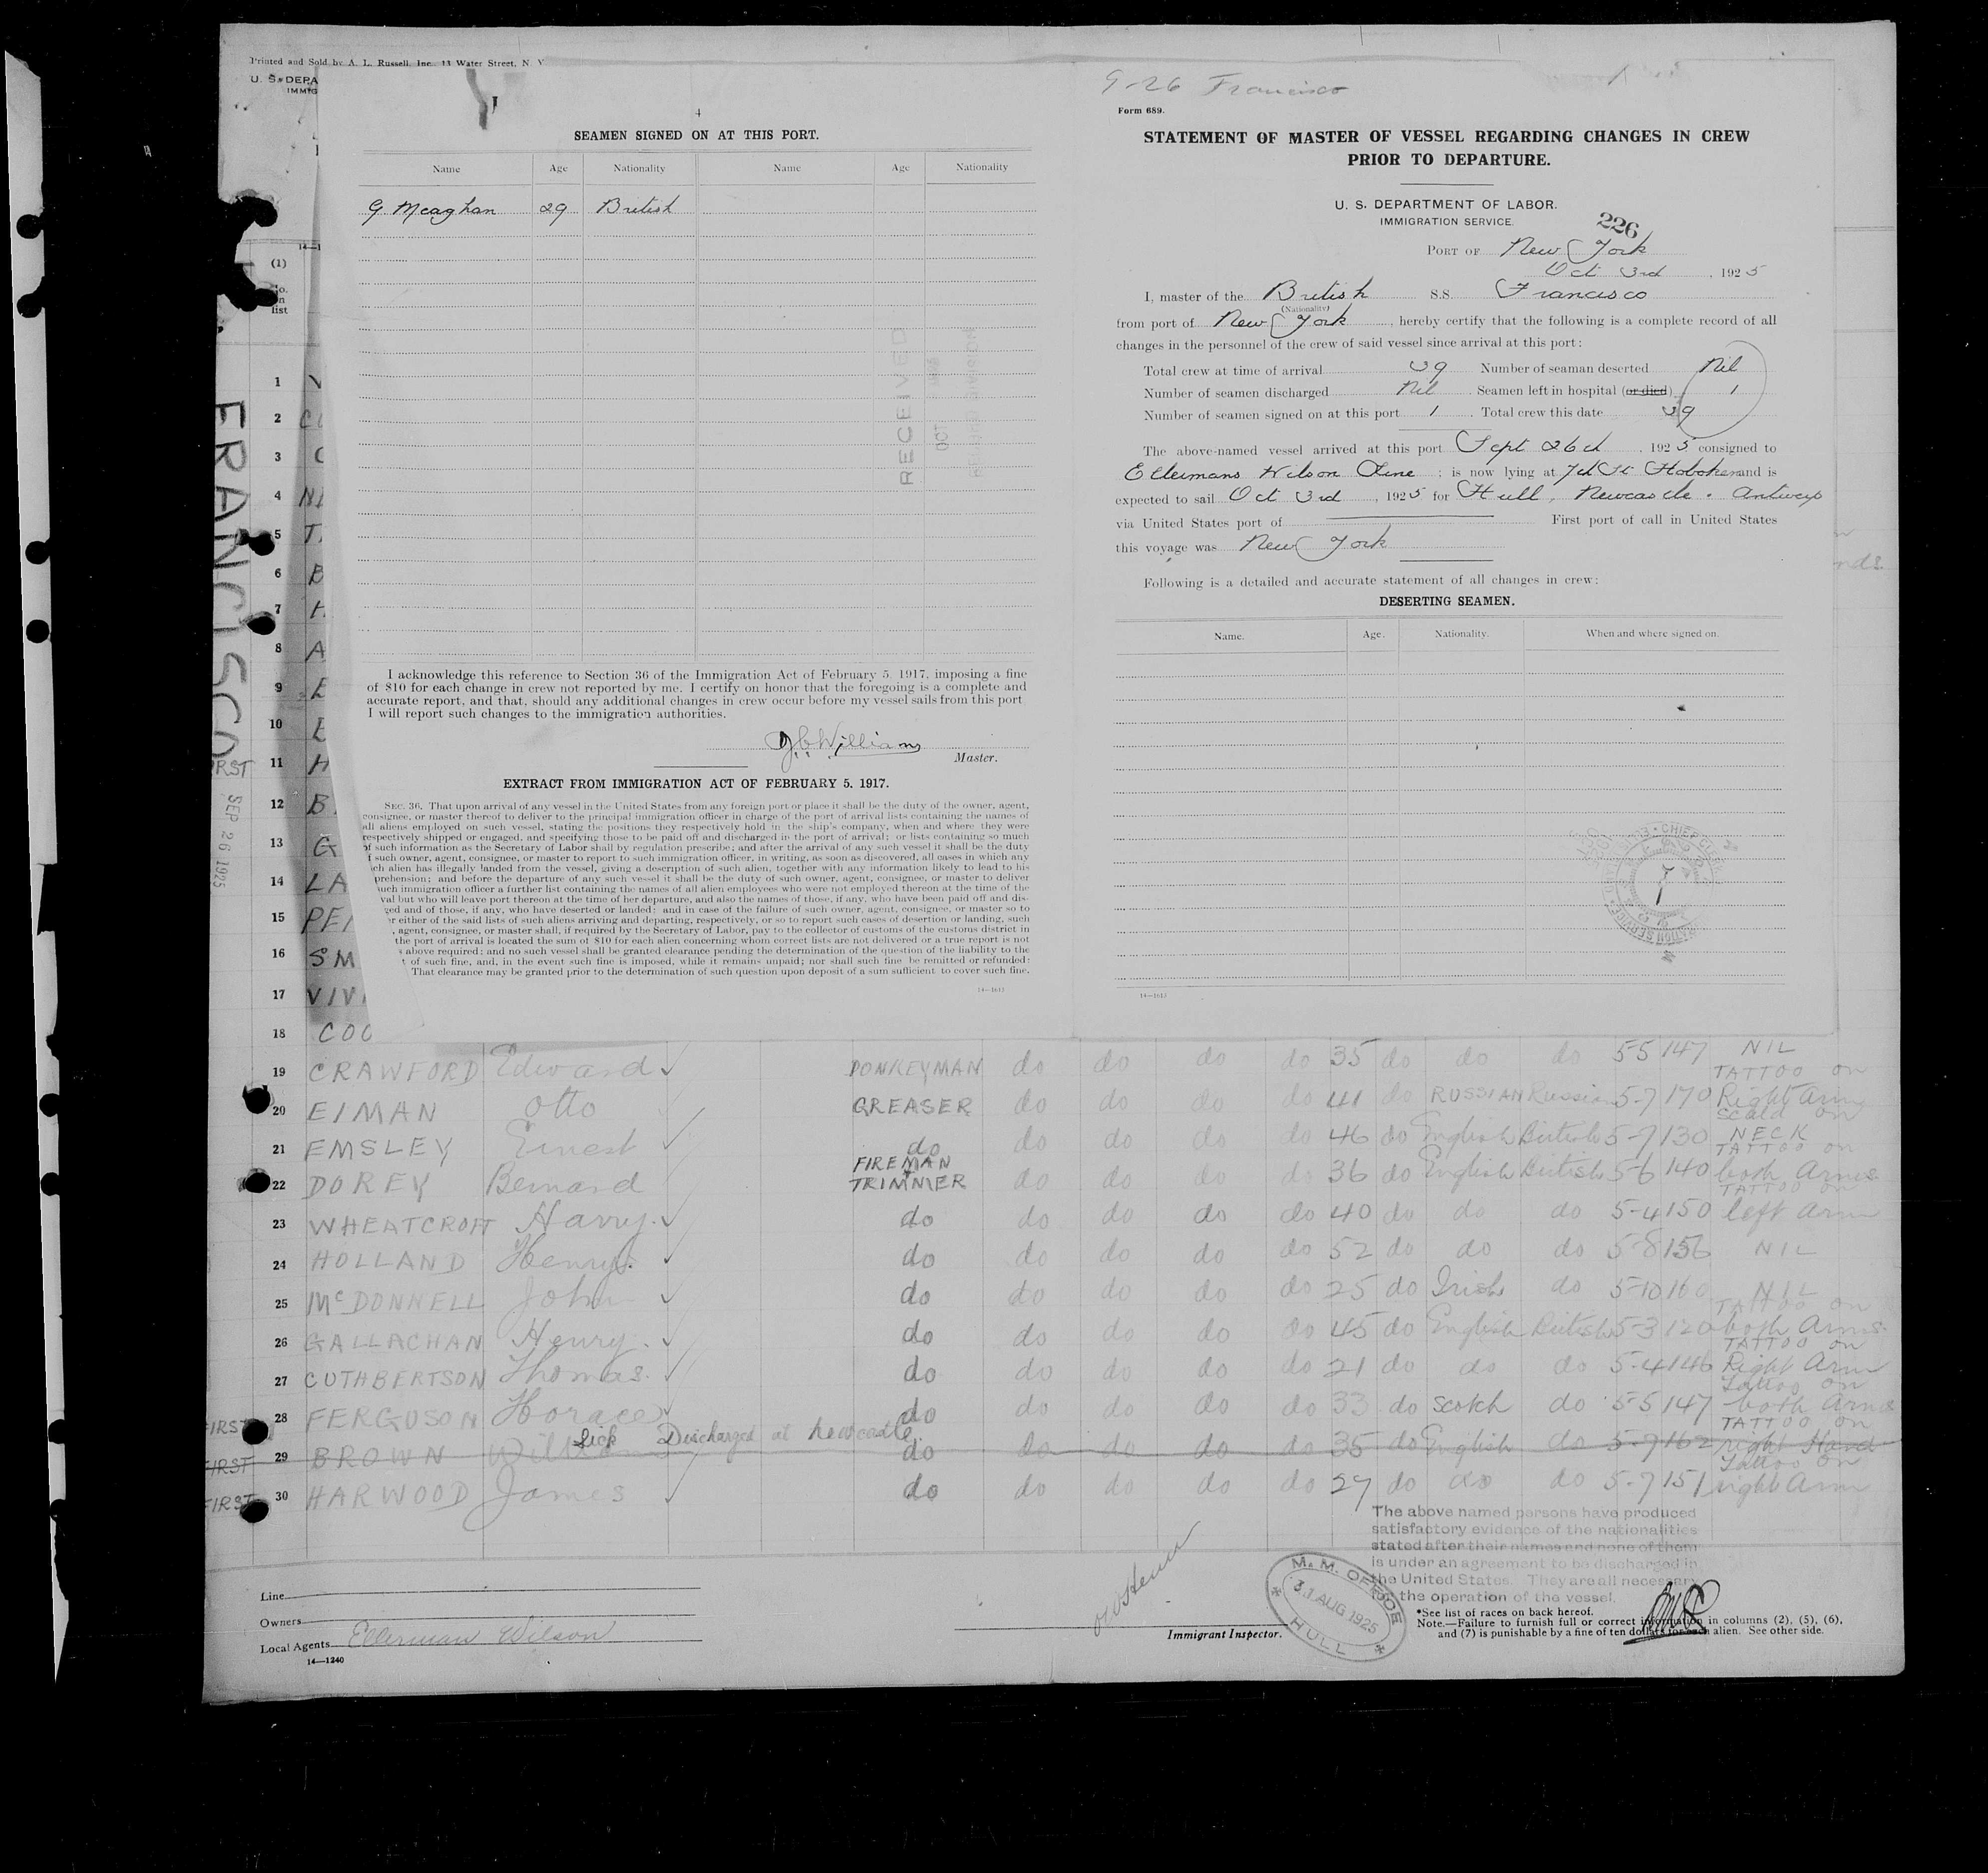 Printed and Sold by A. L. Russell, Inc., 13 Water Street, N. Y.
U. S. DEPA
IMMIG
4
SEAMEN SIGNED ON AT THIS PORT.
Name Age Nationality Name Age Nationality
G Meaghan 29 British
RECEIVED
OCT
I acknowledge this reference to Section 36 of the Immigration Act of February 5, 1917, imposing a fine
of $10 for each change in crew not reported by me. I certify on honor that the foregoing is a complete and
accurate report, and that, should any additional changes in crew occur before my vessel sails from this port
I will report such changes to the immigration authorities.
Williams
Master.
EXTRACT FROM IMMIGRATION ACT OF FEBRUARY 5, 1917.
SEC. 36. That upon arrival of any vessel in the United States from any foreign port or place it shall be the duty of the owner, agent,
consignee, or master thereof to deliver to the principal immigration officer in charge of the port of arrival lists containing the names of
all aliens employed on such vessel, stating the positions they respectively hold in the ship's company, when and where they were
respectively shipped or engaged, and specifying those to be paid off and discharged in the port of arrival; or lists containing so much
of such information as the Secretary of Labor shall by regulation prescribe; and after the arrival of any such vessel it shall be the duty
such owner, agent, consignee, or master to report to such immigration officer, in writing, as soon as discovered, all cases in which any
ch alien has illegally landed from the vessel, giving a description of such alien, together with any information likely to lead to his
prehension; and before the departure of any such vessel it shall be the duty of such owner, agent, consignee, or master to deliver
uch immigration officer a further list containing the names of all alien employees who were not employed thereon at the time of the
val but who will leave port thereon at the time of her departure, and also the names of those, if any, who have been paid off and dis-
ged and of those, if any, who have deserted or landed; and in case of the failure of such owner, agent, consignee, or master so to
r either of the said lists of such aliens arriving and departing, respectively, or so to report such cases of desertion or landing, such
, agent, consignee, or master shall, if required by the Secretary of Labor, pay to the collector of customs of the customs district in
the port of arrival is located the sum of $10 for each alien concerning whom correct lists are not delivered or a true report is not
s above required; and no vessel shall be granted clearance pending the determination of the question of the liability to the
t of such fine, and, in the event such fine is imposed, while it remains unpaid; nor shall such fine be remitted or refunded:
That clearance may be granted prior to the determination of such question upon deposit of a sum sufficient to cover such fine.
9-26 Francisco
Form 689.
STATEMENT OF MASTER OF VESSEL REGARDING CHANGES IN CREW
PRIOR TO DEPARTURE.
U. S. DEPARTMENT OF LABOR.
IMMIGRATION SERVICE.
226
PORT OF New York
Oct 3rd, 1925
I, master of the British S.S. Francisco
(Nationality)
from port of New York, hereby certify that the following is a complete record of all
changes in the personnel of the crew of said vessel since arrival at this port:
Total crew at time of arrival 39 Number of seaman deserted Nil
Number of seamen discharged Nil. Seamen left in hospital (or died) 1
Number of seamen signed on at this port 1. Total crew this date 39
The above-named vessel arrived at this port Sept 26th, 1925 consigned to
Ellermans Wilson Line; is now lying at 7th St Hoboken and is
expected to sail Oct 3rd, 1925 for Hull, Newcastle. Antwerp
via United States port of First port of call in United States
this voyage was New York
Following is a detailed and accurate statement of all changes in crew:
DESERTING SEAMEN.
Name. Age. Nationality. When and where signed on.
FRANCISCO
SEP 26 1925
(1)
No.
on
list
1
2
3
4
5
6
7
8
9
10
11
12
13
14 LA
15 PE
16 SM
17 VIV
18 COO
19 CRAWFORD Edward DONKEYMAN do do do do 35 do do do 5-5 147 NIL
20 EIMAN Otto GREASER do do do do 41 do RUSSIAN Russian 5-7 170 TATTOO on Right Arm
21 EMSLEY Ernest do do do do do 46 do English British 5-7 130 Scald on NECK
22 DOREY Bernard FIREMAN TRIMMER do do do do 36 do English British 5-6 140 TATTOO on both Arms
23 WHEATCROFT Harry. do do do do do 40 do do do 5-4 150 TATTOO on left Arm
24 HOLLAND Henry. do do do do do 52 do do do 5-8 156 NIL
25 McDONNELL John do do do do do 25 do Irish do 5-10 160 NIL
26 GALLACHAN Henry. do do do do do 45 do English British 5-3 120 TATTOO on both Arms.
27 CUTHBERTSON Thomas. do do do do do 21 do do do 5-4 146 TATTOO on Right Arm
FIRST 28 FERGUSON Horace do do do do do 33 do Scotch do 5-5 147 Tattoo on both Arms
Sick Discharged at Newcastle.
FIRST 29 BROWN William do do do do do 35 do English do 5-7 162 TATTOO on right Hand
FIRST 30 HARWOOD James do do do do do 27 do do do 5-7 151 Tattoo on right Arm
The above named persons have produced
satisfactory evidence of the nationalities
stated after their names and none of them
is under an agreement to be discharged in
the United States. They are all necessary
to the operation of the vessel.
M. M. OFFICE
31 AUG 1925
HULL
Line
Owners
Local Agents Ellerman Wilson
14—1240
Immigrant Inspector.
*See list of races on back hereof.
Note.—Failure to furnish full or correct information in columns (2), (5), (6),
and (7) is punishable by a fine of ten dollars for each alien. See other side.